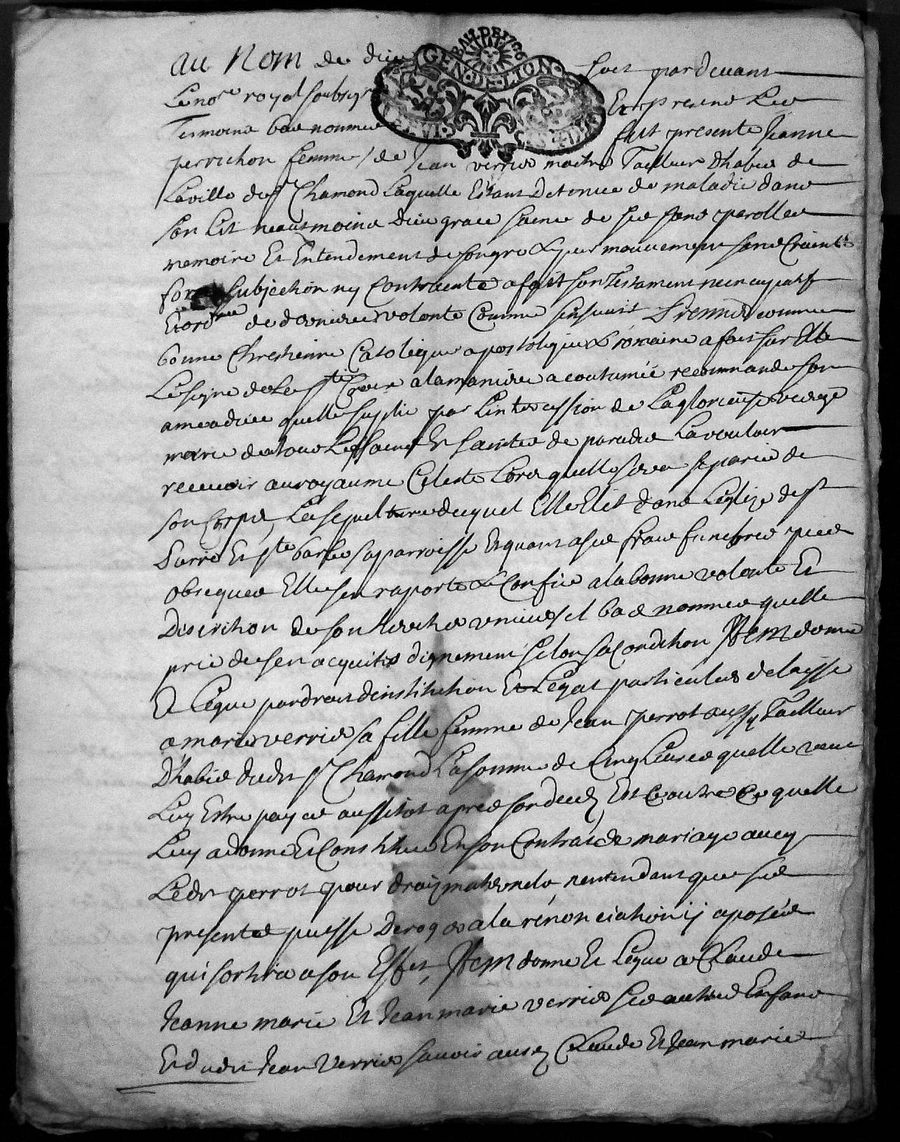 au Nom de dieu soit pardevant
Le no.re royal soubsig.é Et present Les
Temoins bas nommes fust presente Jeanne
perrichon femme de Jean verrier maitre Tailleur dhabis de
La ville de S.t Chamond Laquelle Estant Detenue de maladie dans
son Lit neautmoins dieu grace saine de ses sens parolles
memoire Et Entendement de son gré & pur mouvement sans Crainte
force subjection ny Contrainte a fait son Testament nuncupatif
Et ord.re de derniere volonte Comme sensuit Premier Comme
bonne Chrestienne Catolique apostolique & romaine a fait sur Elle
Le signe de La S.te Croix a la maniere acoutumée recommande son
ame a dieu quelle supplie par Lintercession de La glorieuse vierge
marie de tous Les saints Et saintes de paradis La vouloir
recevoir au royaume Celeste Lors quelle sera separée de
son Corps La sepulture duquel Elle Elit dans Leglize de S.t
Pierre Et S.te barbe sa parroisse Et quant a ses fraix funebres
obseques Elle sen raporte & Confie a la bonne volonte Et
Discrition de son heritier universel bas nommé quelle
prie de sen acquiter dignement selon sa Condition Item donne
Et Legue par droit dinstitution Et Legat particulier delaisse
a marie verrier sa fille femme de Jean perrot aussy Tailleur
Dhabis dudit S.t Chamond La somme de Cinq Livres quelle veut
Luy Estre payée aussitot apres son deces Et Coutre Ce quelle
Luy a donne Et Constitue En son Contrat de mariage avec
Ledit perrot pour droits maternels nentendant que ses
presentes puisse Deroger a la rénonciation y aposée
qui sortira a son Effet, Item donne Et Legue a Claude
Jeanne marie Et Jean marie verrier ses autres Enfans
Et dudit Jean Verrier savoir auxd. Claude Et Jean marie
GEN DE LION